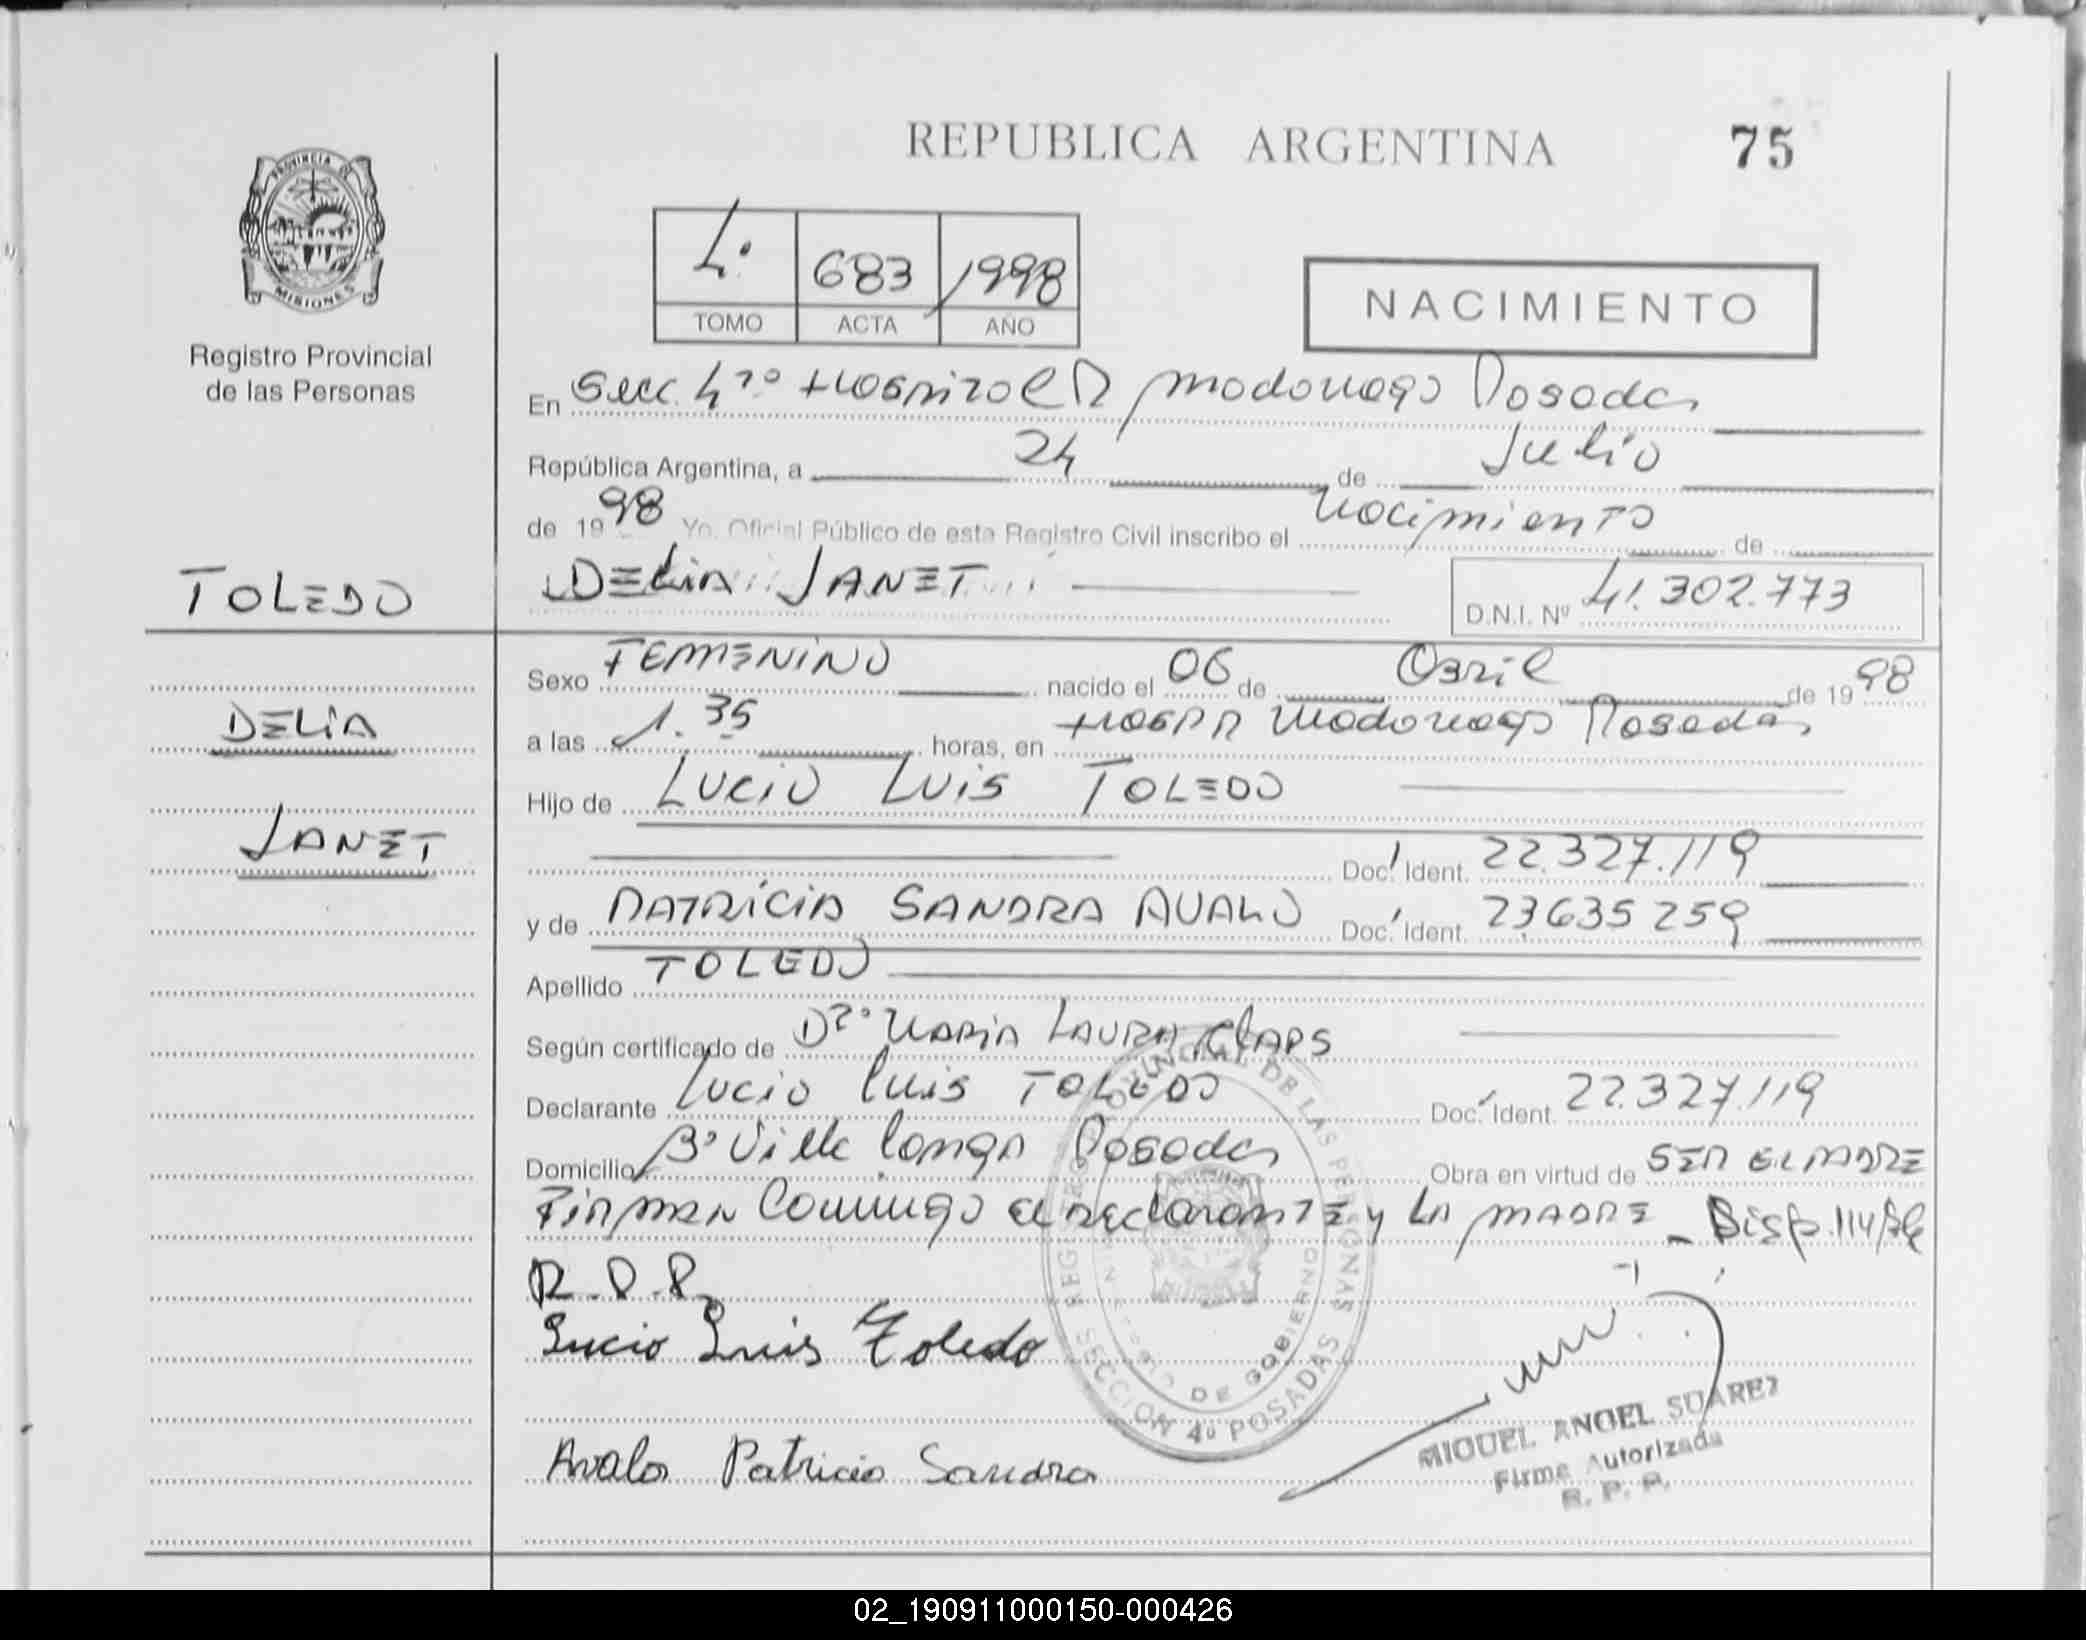 REPUBLICA ARGENTINA
75
PROVINCIA DE
MISIONES
Registro Provincial
de las Personas
4º 683 1998
TOMO ACTA AÑO
NACIMIENTO
En Secc. 4ta Hospital R Madariaga Posadas
República Argentina, a 24 de Julio
de 1998 Yo, Oficial Público de este Registro Civil inscribo el Nacimiento de
TOLEDO
DELIA JANET
D.N.I. Nº 41.302.773
DELIA
JANET
Sexo FEMENINO nacido el 06 de Abril de 1998
a las 1.35 horas, en Hosp R Madariaga Posadas
Hijo de LUCIO LUIS TOLEDO
Doc. Ident. 22.327.119
y de PATRICIA SANDRA AVALO Doc. Ident. 23635259
Apellido TOLEDO
Según certificado de Dra MARIA LAURA CLAPS
Declarante Lucio Luis TOLEDO Doc. Ident. 22.327.119
Domicilio Bº Villa Longa Posadas Obra en virtud de SER EL PADRE
Firman Conmigo el declarante y LA MADRE - Disp.
R.P.P.
Lucio Luis Toledo
Avalo Patricia Sandra
REGISTRO PROVINCIAL DE LAS PERSONAS
SECCION 4º POSADAS
DE GOBIERNO
MIGUEL ANGEL SUAREZ
Firma Autorizada
R. P. P.
02_190911000150-000426